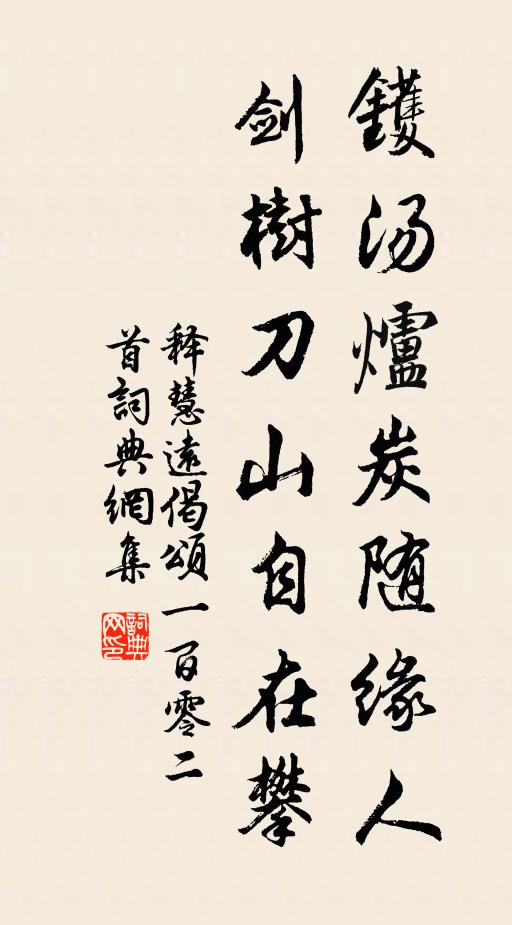 鑊汤爐炭随缘人
剑樹刀山自在攀
释慧遠偈頌一百零二
首詞典網集
詞典网印